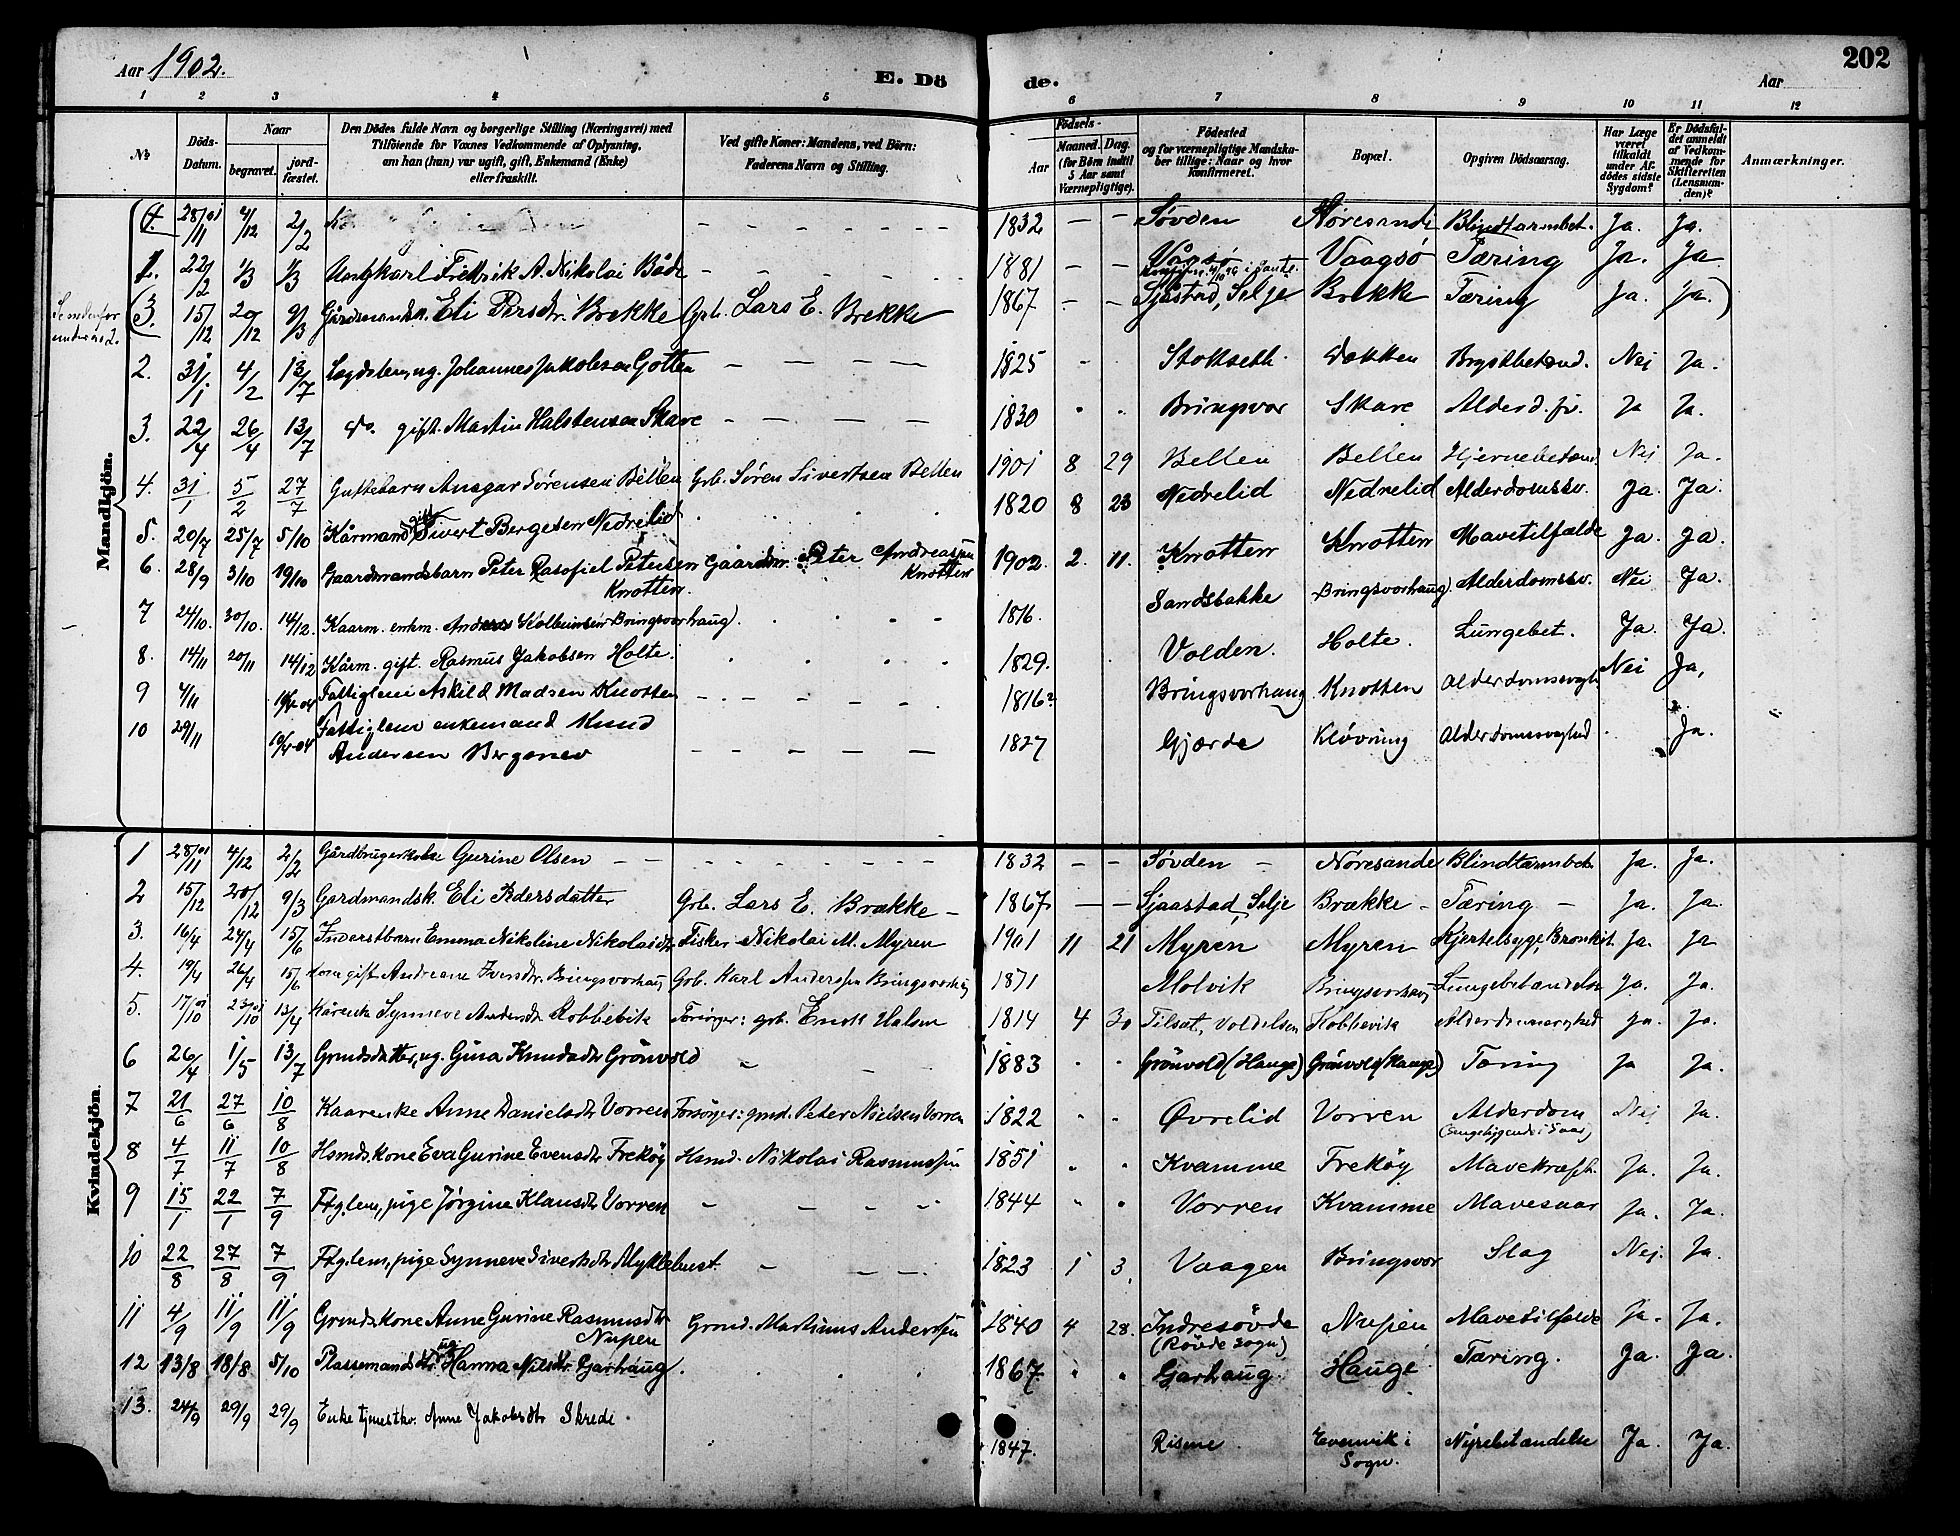 Aar 1902.
E. Dö de.
Aar
202
1 2 3 4 5 6 7 8 9 10 11 12
No.
Döds-Datum.
Naar
begravet.
jord-fæstet.
Den Dödes fulde Navn og borgerlige Stilling (Næringsvei) med
Tilföiende for Voxnes Vedkommende af Oplysning,
om han (hun) var ugift, gift, Enkemand (Enke)
eller fraskilt.
Ved gifte Koner: Mandens, ved Börn:
Faderens Navn og Stilling.
Födsels-
Aar
Maaned. Dag.
(for Börn indtil
5 Aar samt
Værnepligtige).
Födested
og for værnepligtige Mandska-
ber tillige: Naar og hvor
konfirmeret.
Bopæl.
Opgiven Dödsaarsag.
Har Læge
været
tilkaldt
under Af-
dödes sidste
Sygdom?
Er Dödsfal-
det anmeldt
af Vedkom-
mende for
Skifteretten
(Lensman-
den)?
Anmærkninger.
Mandkjön.
28/11 01 4/12 2/2 1832 — — Søvden Nøresande Blindtarmbet. Ja. Ja.
1. 22/2 1/3 1/3 Ungkarl Fredrik A. Nikolai Både 1881 — — Vågsø Vaagsø Tæring Ja. Ja
(3. 15/12 20/12 9/3 Gårdmandsk. Eli Persdtr. Brekke Grb. Lars E. Brekke 1867 — — Sjåstad, Selje Brekke Tæring Ja. Ja.)
2. 31/1 4/2 13/7 Lægdslem, ug. Johannes Jakobsen Gotten 1825 Stokseth Dokken Brystbetænd. Nei Ja.
3. 22/4 26/4 13/7 do. gift. Martin Halstensen Skare 1830 Bringsvor Skare Alderd.sv. Ja Ja.
4. 31/1 5/2 27/7 Guttebarn Ansgar Sørensen Bellen Grb. Søren Sivertsen Bellen 1901 8 29 Bellen Bellen Hjernebetænd. Nei Ja.
5. 20/7 25/7 5/10 Kårmand gift Sivert Bergesen Nedrelid 1820 8 23 Nedrelid Nedrelid Alderdomssv. Ja Ja.
6. 28/9 3/10 19/10 Gaardmandsbarn Peter Rasofiel Petersen Knotten. Gaardm. Peter Andreassen Knotten 1902 2. 11. Knotten Knotten Mavetilfælde Ja. Ja.
7 24/10. 30/10. 14/12. Kaarm. enkm. Anders Kolbeinsen Bringsvorhaug) 1816. Sandsbakke Bringsvorhaug) Alderdomssv. Nei Ja.
8. 14/11 20/11 14/12 Kårm. gift. Rasmus Jakobsen Holte. 1829. Volden. Holte. Lungebet. Ja. Ja.
9 4/11 Fattiglem Askild Madsen Knotten 1816? Bringsvorhaug Knotten Alderdomssvagh. Nei Ja,
10 29/11 10/4-04 Fattiglem enkemand Knud
Andersen Bergsnev 1827 Gjærde Kløvning Alderdomssvaghed Ja.
Kvindekjön.
1 28/11 01 4/12 2/2 Gårdbrugerkone Gurine Olsen 1832 — — Søvden — Nøresande Blindtarmbet. Ja. Ja.
2 15/12 20/12 9/3 Gardmandsk. Eli Pedersdatter Grb. Lars E. Brække — 1867 — — Sjaastad, Selje Brække — Tæring — Ja. Ja.
3. 16/4 24/4 15/6 Inderstbarn Emma Nikoline Nikolaidtr. Fisker Nikolai M. Myren 1901 11 21 Myren Myren Kjertelsyge, Bronkit Ja. Ja
4. 19/4 26/4 15/6 Kone gift Andreane Iversdtr. Bringsvorhaug Grb. Karl Anderssen Bringsvorhaug 1871 Molvik Bringsvorhaug Lungebetændelse Ja. Ja.
5. 17/10 01 23/10 01 13/4 Kårenke Synneve Andersdtr. Kobbevik Forsørger: grb. Enok Halsen 1814 4 30 Tilset, Voldelsen Kobbevik Alderdomssvaghed Ja. Ja.
6 26/4 1/5 13/7 Grmdsdatter, ug. Gina Knudsdtr Grönvold 1883 Grönvold (Hauge) Grönvold (Hauge) Tæring Ja Ja.
7 21/6 27/6 10/8 Kaarenke Anne Danielsdtr Vorren Forsørger: grmd. Peter Nielsen Vorren 1822 Øvrelid Vorren Alderdom
(sengeliggende i 5 aar) Nei Ja.
8 4/7 11/7 10/8 Hsmds. kone Eva Gurine Evensdtr Frekøy Hsmd. Nikolai Rasmussen 1851 Kvamme Frekøy Mavekræft. Ja. Ja.
9 15/1 22/1 7/9 Ftg.lem, pige Jørgine Klausdtr Vorren 1844 Vorren Kvamme Mavesaar Ja. Ja.
10 22/8 27/8 7/9 Ftg.lem, pige Synneve Sivertsdtr Myklebust. 1823 1 3. Vaagen Bringsvor Slag Nej. Ja.
11 4/9 11/9 11/9 Grmds. kone Anne Gurine Rasmusdtr
Nupen Grmd. Martinus Anderssen 1840 4 28. Indresøvde
(Røvde Sogn) Nupen Mavetilfælde Ja. Ja.
12 13/8 18/8 5/10 Plassemandsdtr. ug. Hanna Nilsdtr. Garhaug 1867 Garhaug. Hauge Tæring. Ja. Ja.
13. 24/9 29/9 29/9 Enke tjenestko. Anne Jakobsdtr Skredi 1847. Risme Evenvik i
Sogn. Nyrebetændelse Ja. Ja.